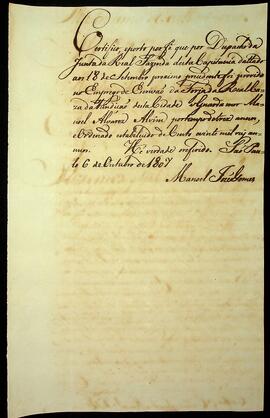 Certifico, e porto por fé que por Dupacto da
Junta da Real Fazenda desta Capitania dattado
aos 18 de Setembro proximo precedente foi provido
no Emprego de Escrivaõ da Forja da Real Ca-
za da Fundicaõ desta Cidade o Guarda mor Ma-
noel Alvares Alvim por tempo de trez annos,
e Ordenado estabelecido de Cento e vinte mil reis an-
nuos. He verdade o referido. Saõ Pau-
lo 6 de Outubro de 1807
Manoel Joze Gomes